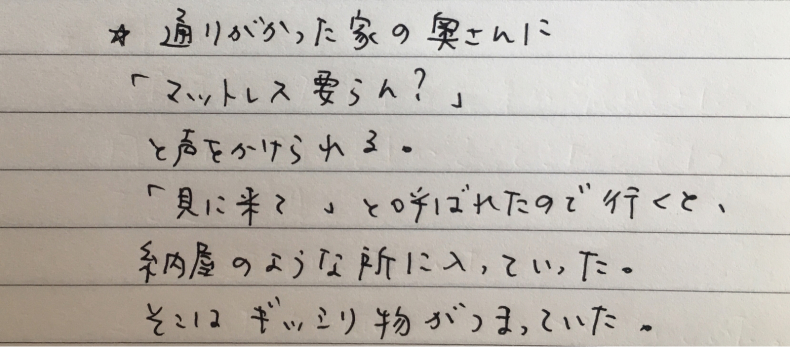 ☆ 通りがかった家の奥さんに
「マットレス要らん？」
と声をかけられる。
「見に来て」と呼ばれたので行くと、
納屋のような所に入っていった。
そこはギッシリ物がつまっていた。